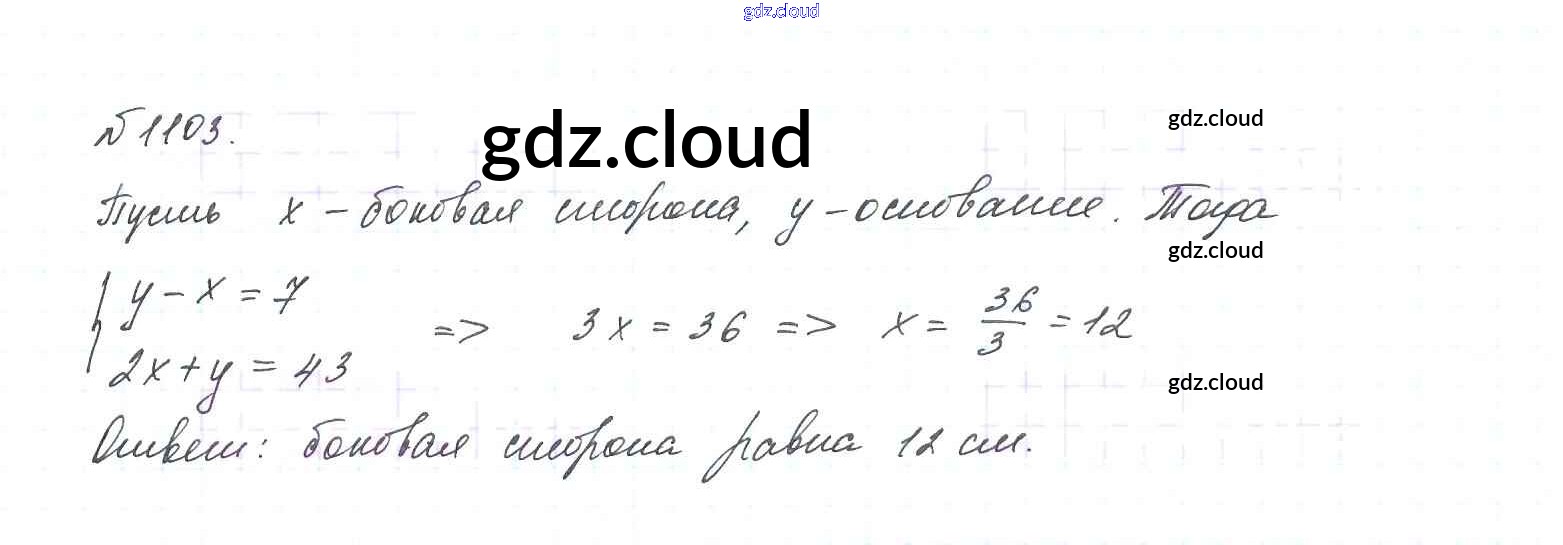 gdz.cloud
№1103.
gdz.cloud
gdz.cloud
Пусть x – боковая сторона, y – основание. Тогда
gdz.cloud
{ y – x = 7
2x + y = 43
=> 3x = 36 => x = 36/3 = 12
gdz.cloud
Ответ: боковая сторона равна 12 см.